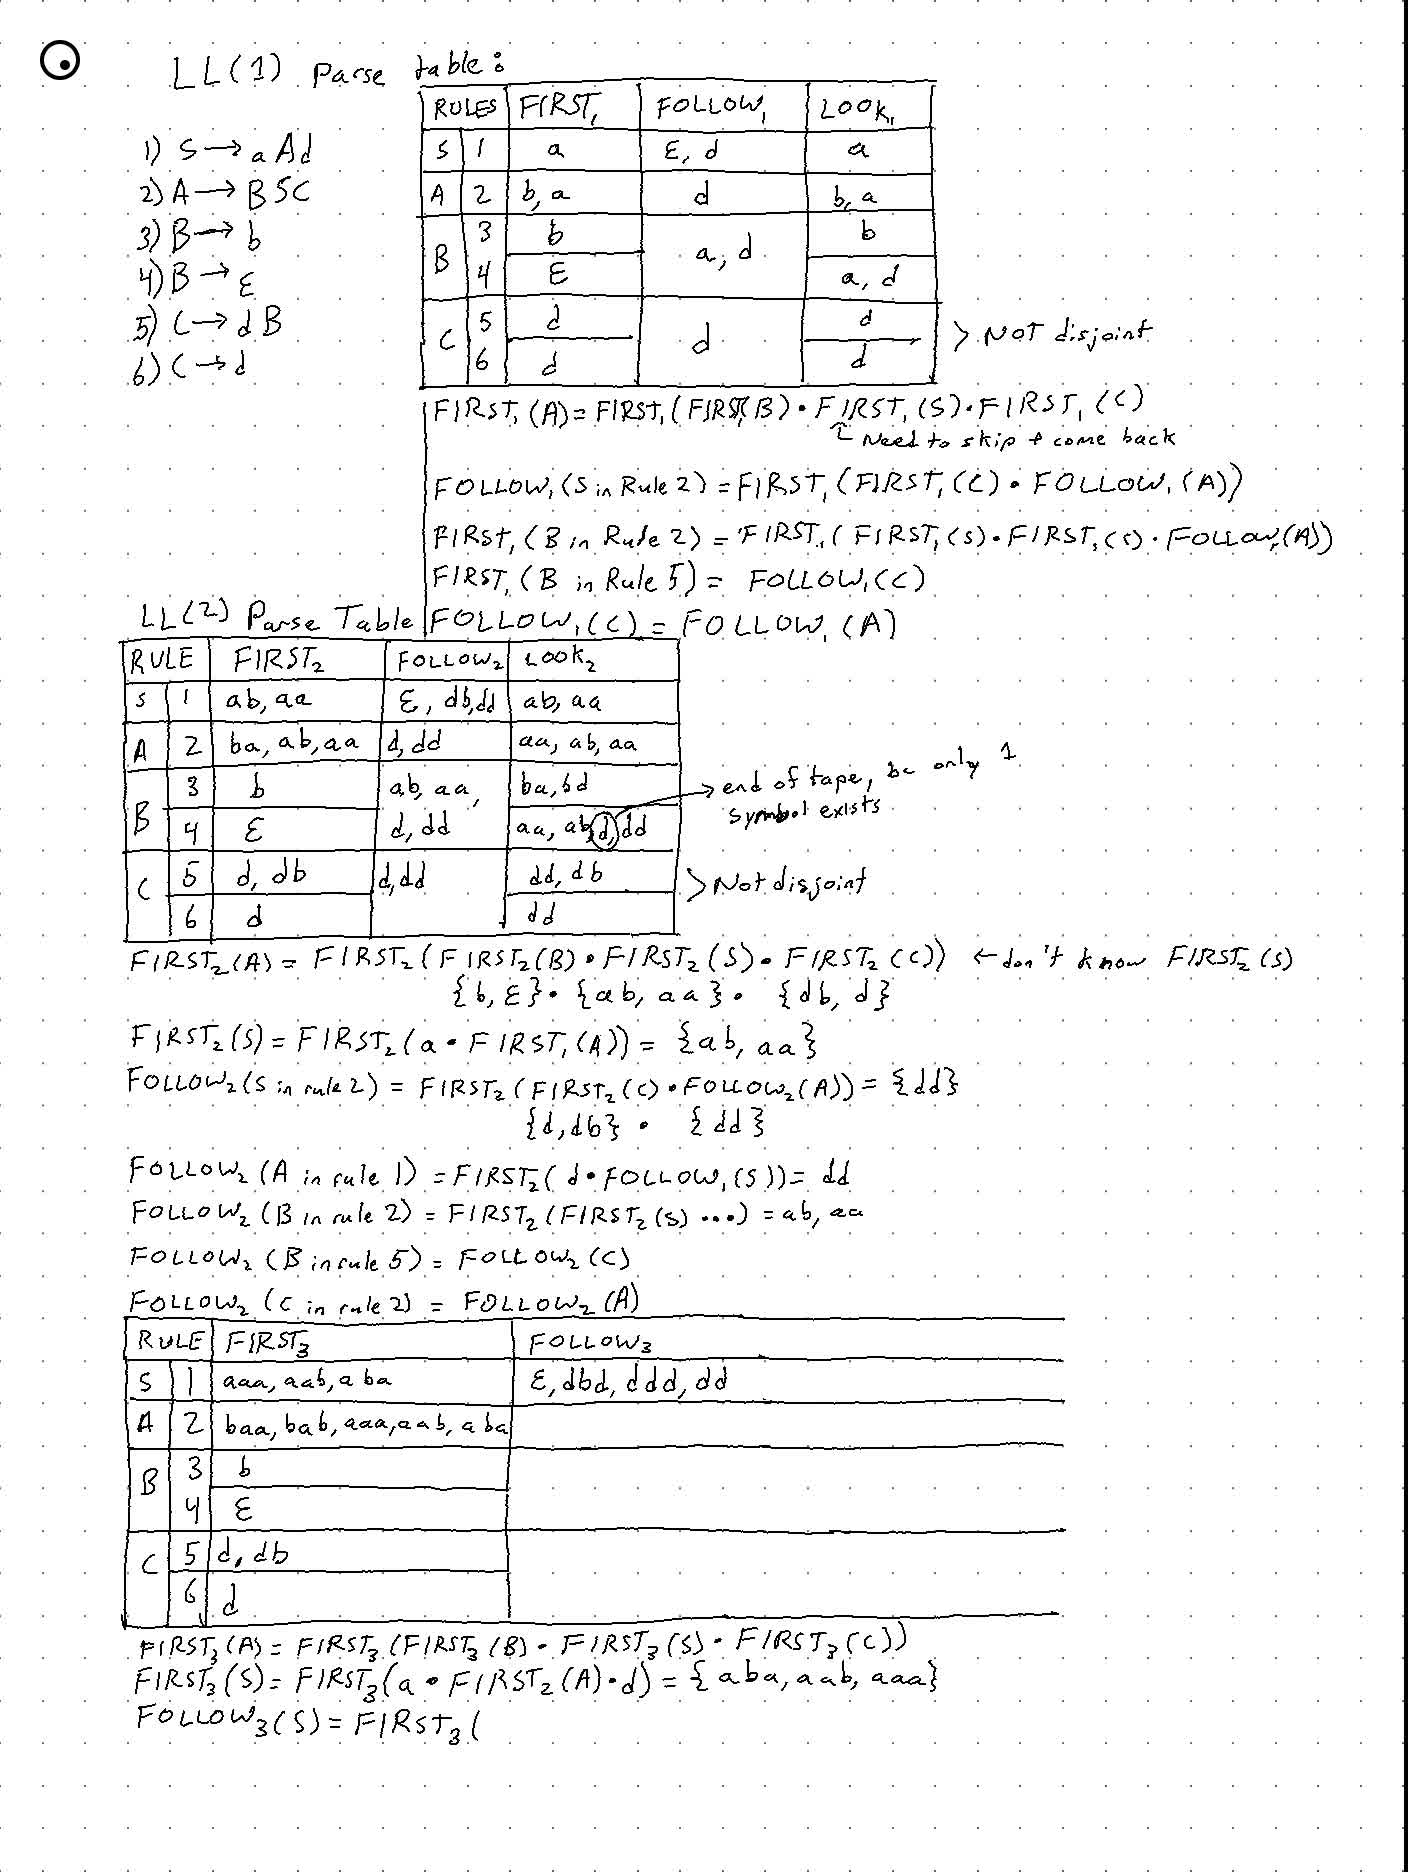 LL(1) Parse table:
RULES FIRST₁ FOLLOW₁ LOOK₁
S 1 a ε, d a
A 2 b, a d b, a
B 3 b a, d b
4 ε a, d
C 5 d d d
6 d d
> NOT disjoint
1) S → aAd
2) A → BSC
3) B → b
4) B → ε
5) C → dB
6) C → d
FIRST₁(A) = FIRST₁(FIRST₁(B) • FIRST₁(S) • FIRST₁(C)
Need to skip + come back
FOLLOW₁(S in Rule 2) = FIRST₁(FIRST₁(C) • FOLLOW₁(A))
FIRST₁(B in Rule 2) = FIRST₁(FIRST₁(S) • FIRST₁(C) • FOLLOW₁(A))
FIRST₁(B in Rule 5) = FOLLOW₁(C)
FOLLOW₁(C) = FOLLOW₁(A)
LL(2) Parse Table
RULE FIRST₂ FOLLOW₂ LOOK₂
S 1 ab, aa ε, db, dd ab, aa
A 2 ba, ab, aa d, dd aa, ab, aa
B 3 b ab, aa, ba, bd
4 ε d, dd aa, ab, d, dd
→ end of tape, bc only 1
symbol exists
C 5 d, db d, dd dd, db
6 d dd
> Not disjoint
FIRST₂(A) = FIRST₂(FIRST₂(B) • FIRST₂(S) • FIRST₂(C)) ← don't know FIRST₂(S)
{b, ε} • {ab, aa} • {db, d}
FIRST₂(S) = FIRST₂(a • FIRST₁(A)) = {ab, aa}
FOLLOW₂(S in rule 2) = FIRST₂(FIRST₂(C) • FOLLOW₂(A)) = {dd}
{d, db} • {dd}
FOLLOW₂(A in rule 1) = FIRST₂(d • FOLLOW₁(S)) = dd
FOLLOW₂(B in rule 2) = FIRST₂(FIRST₂(S) ...) = ab, aa
FOLLOW₂(B in rule 5) = FOLLOW₂(C)
FOLLOW₂(C in rule 2) = FOLLOW₂(A)
RULE FIRST₃ FOLLOW₃
S 1 aaa, aab, aba ε, dbd, ddd, dd
A 2 baa, bab, aaa, aab, aba
B 3 b
4 ε
C 5 d, db
6 d
FIRST₃(A) = FIRST₃(FIRST₃(B) • FIRST₃(S) • FIRST₃(C))
FIRST₃(S) = FIRST₃(a • FIRST₂(A) • d) = {aba, aab, aaa}
FOLLOW₃(S) = FIRST₃(